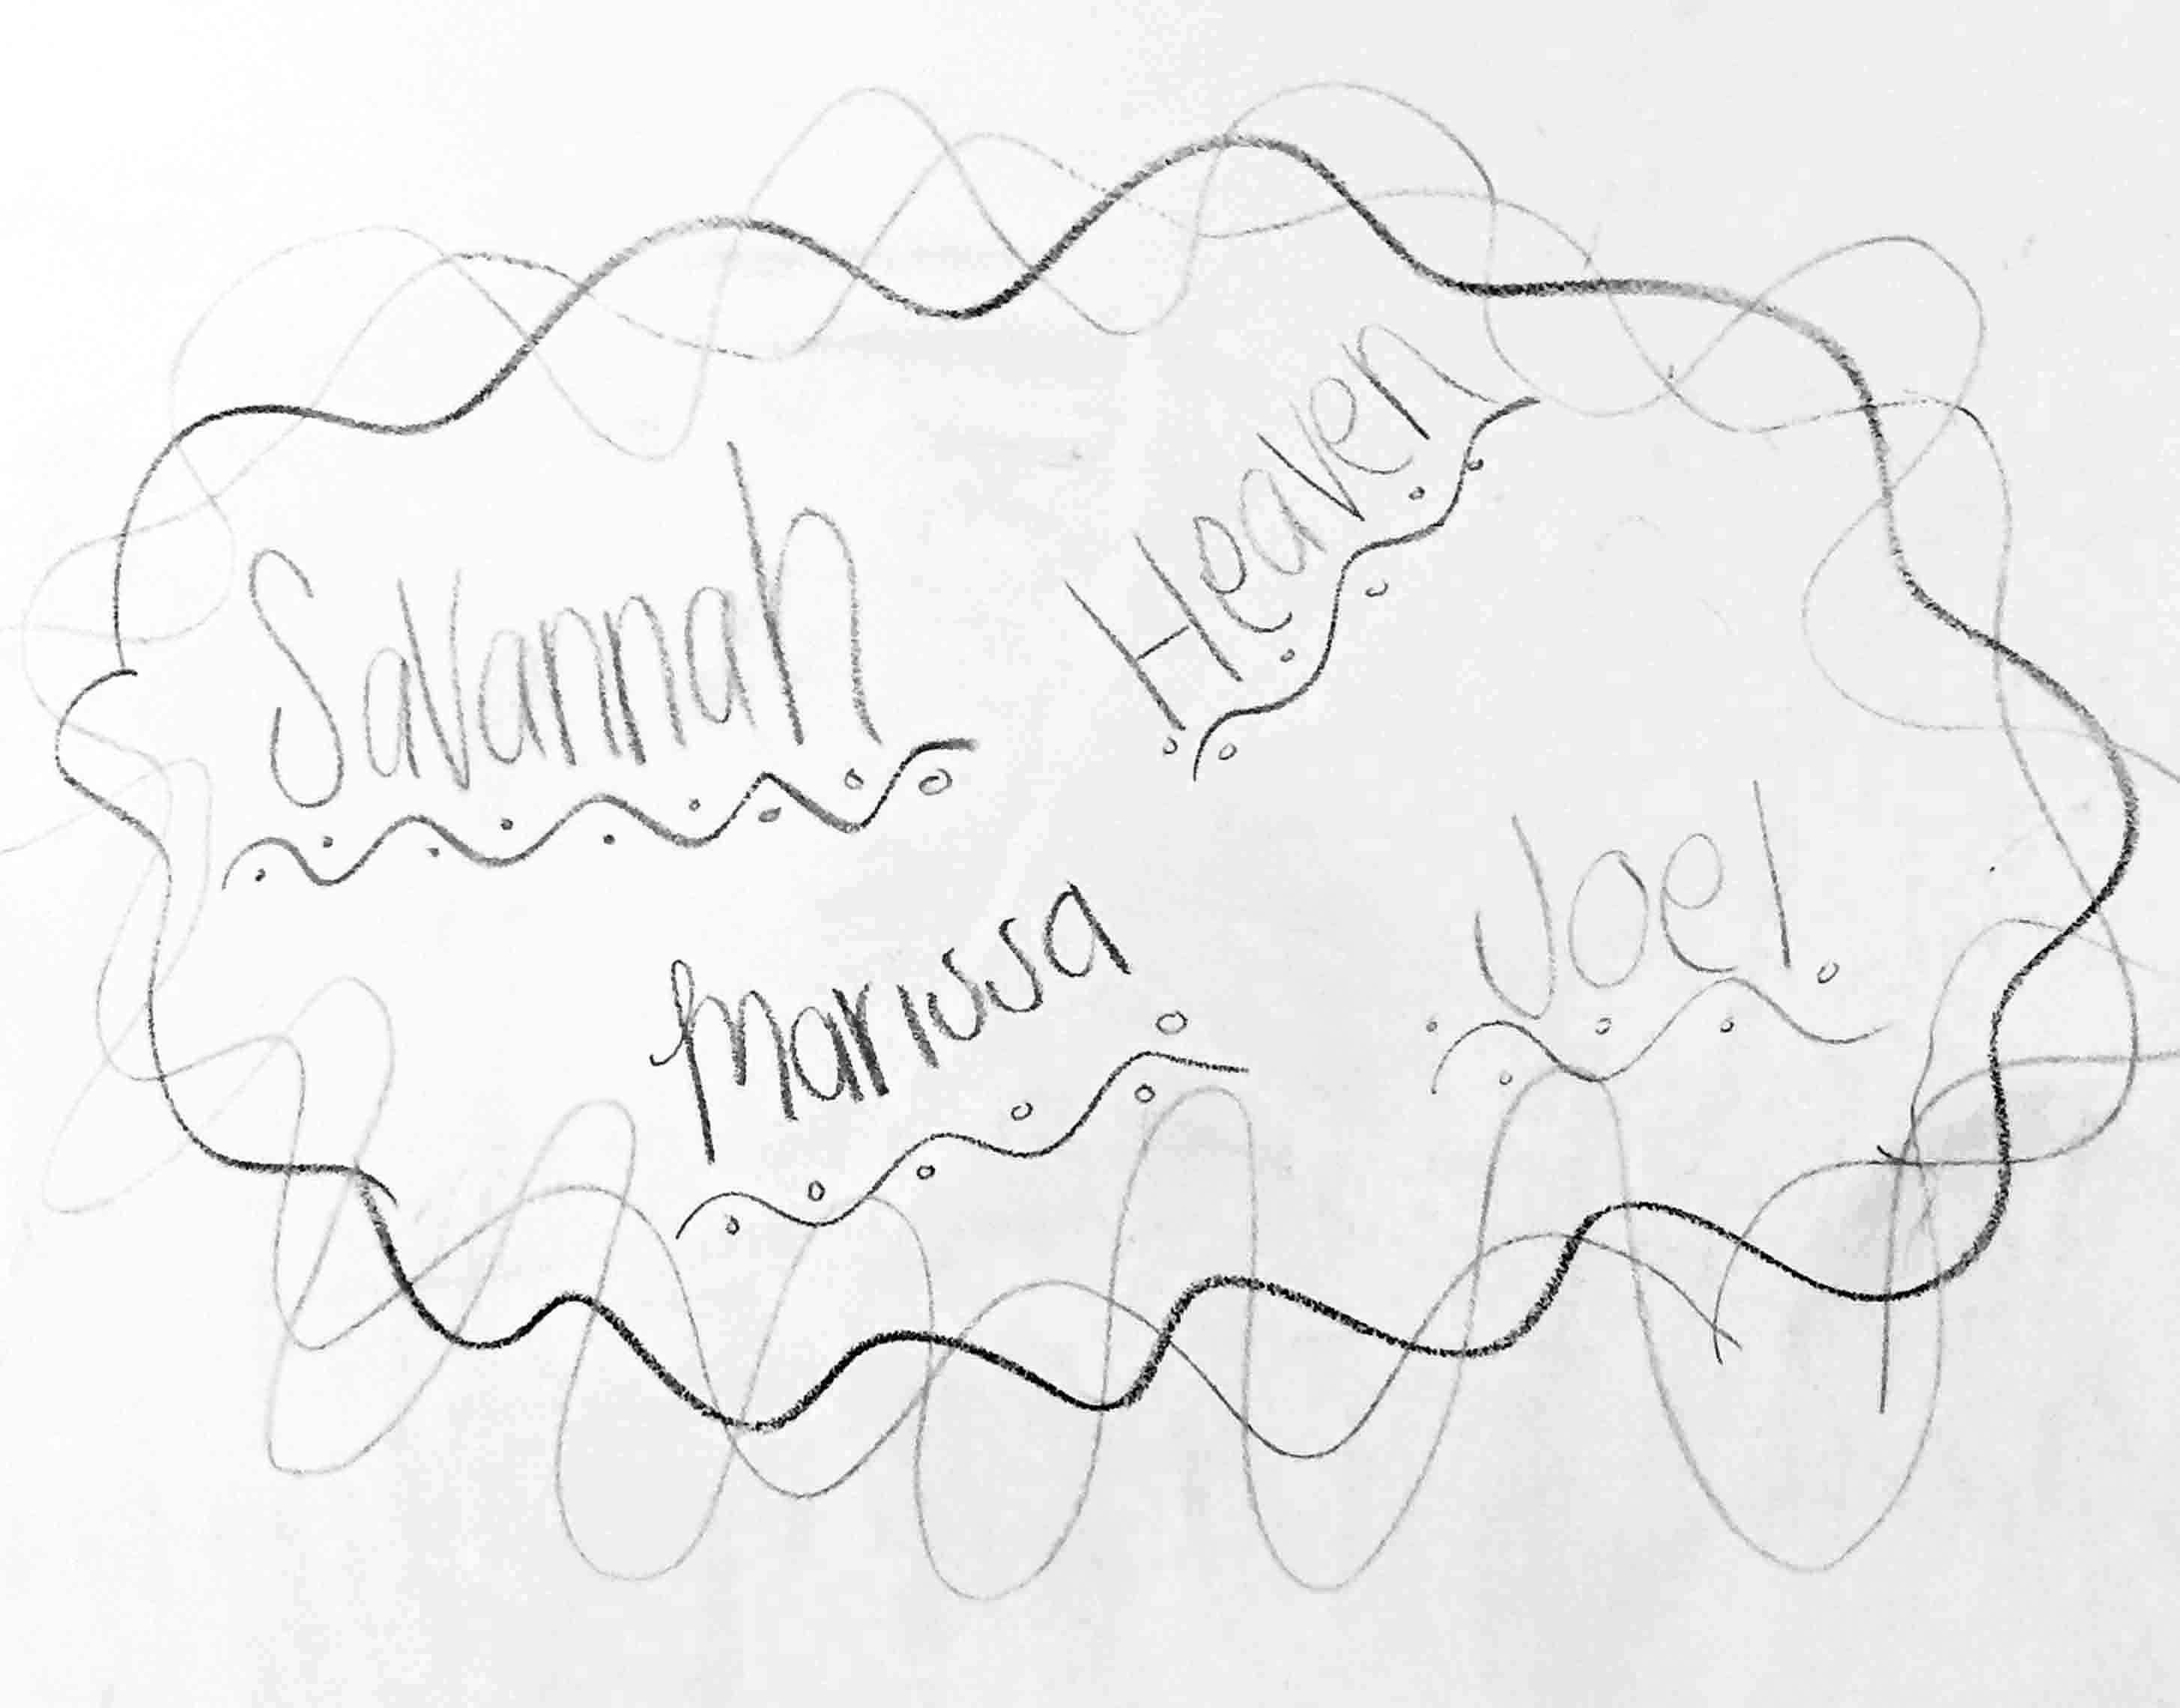 Savannah
Heaven
Marissa
Joel